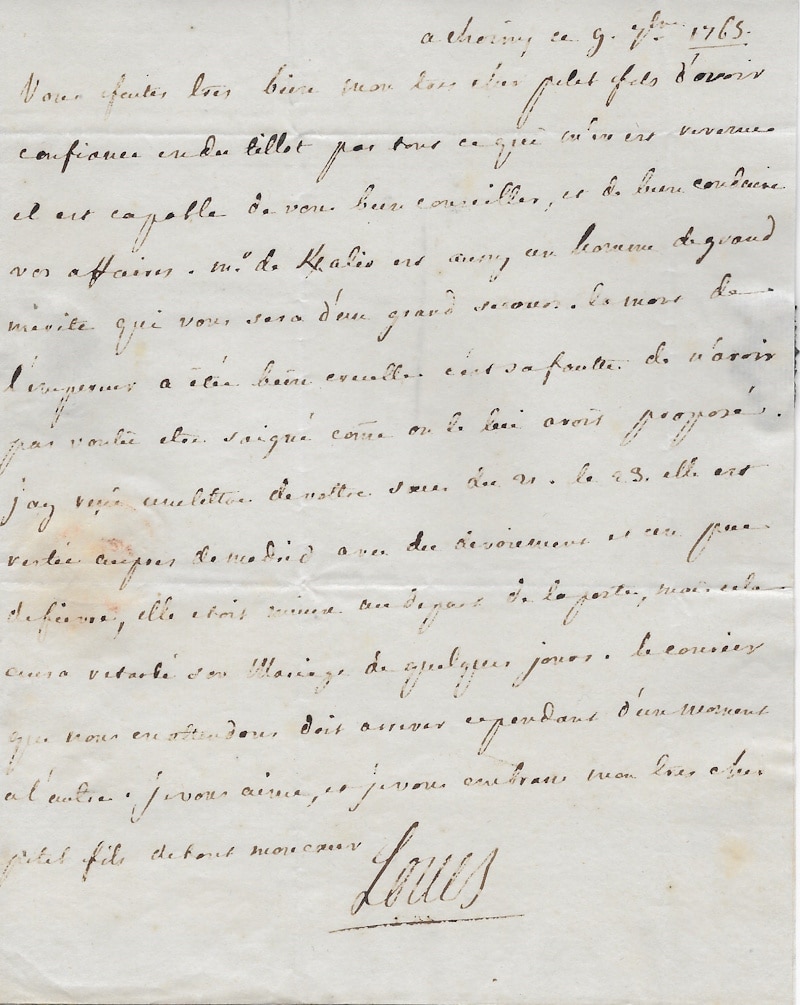 a choisy ce 9. 7bre 1765.
Vous faites tres bien mon tres cher petit fils d'avoir
confiance en du tillot par tout ce qui m'en est revenue
il est capable de vous bien conseiller, et de bien conduire
vos affaires. Mr. de Keralio est aussy un homme de grand
mérite qui vous sera d'un grand secours. la mort de
l'empereur a étée bien cruelle c'est sa faulte de n'avoir
pas voulu etre saigné come on le lui avoit proposé.
j'ay une lettre de vottre soeur du 21. le 23. elle est
restée aupres de madrid avec du devoiement et un peu
de fievre, elle etoit mieux au depart de la poste, mais cela
aura retardé son Mariage de quelques jours. le courier
que nous en attendons doit arriver cependant d'un moment
a l'autre. je vous aime, et je vous embrasse mon tres cher
petit fils de tout mon coeur
Louis